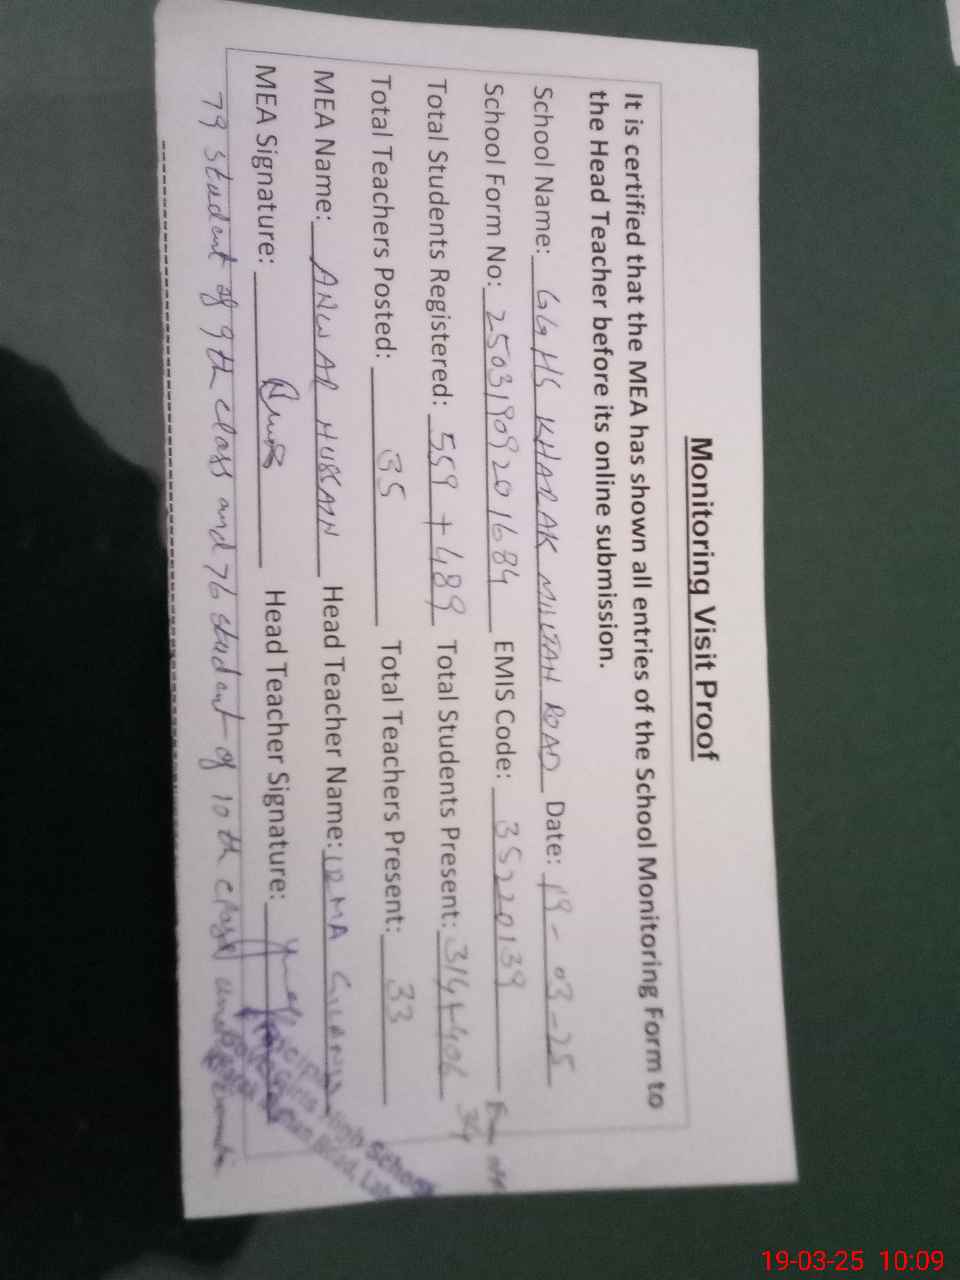 Monitoring Visit Proof
It is certified that the MEA has shown all entries of the School Monitoring Form to
the Head Teacher before its online submission.
School Name: GGHS KHARAK MULTAN ROAD Date: 19-03-25
School Form No: 25031909201684 EMIS Code: 35220139
Total Students Registered: 559 + 489 Total Students Present: 314+406
Total Teachers Posted: 35 Total Teachers Present: 33
MEA Name: ANWAR HUSSAIN Head Teacher Name:
MEA Signature: Head Teacher Signature:
79 student of 9th class and 76 student of 10th class
High School
19-03-25 10:09